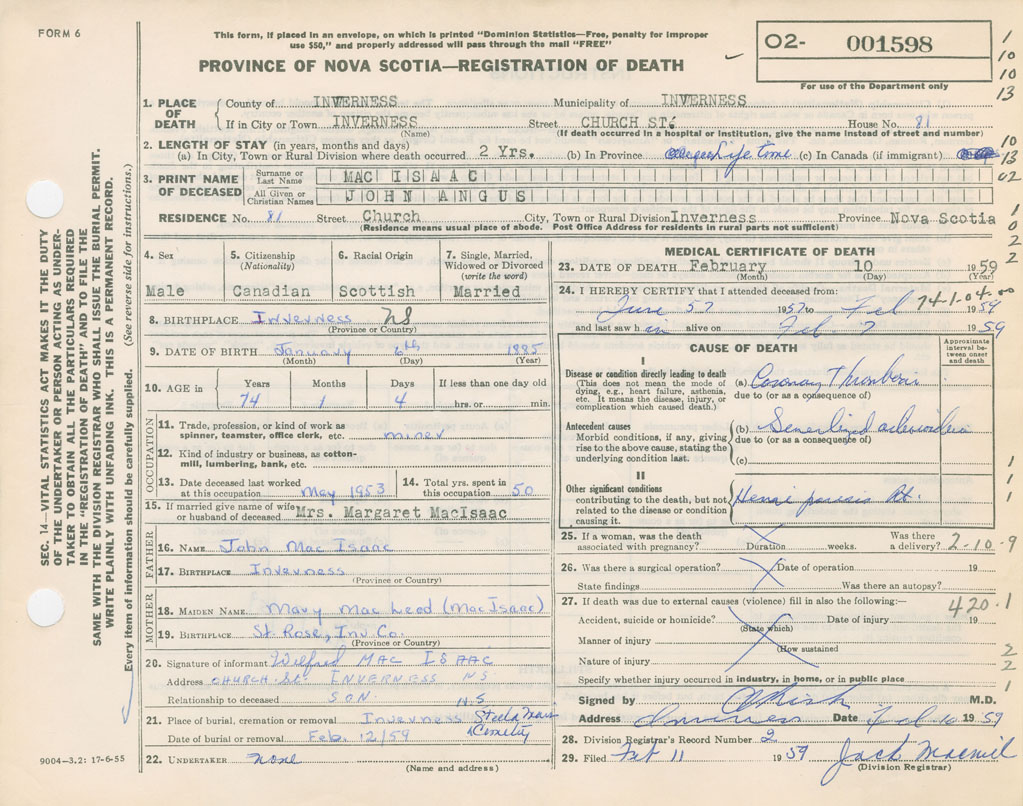 FORM 6
This form, if placed in an envelope, on which is printed "Dominion Statistics—Free, penalty for improper
use $50," and properly addressed will pass through the mail "FREE"
PROVINCE OF NOVA SCOTIA—REGISTRATION OF DEATH
02- 001598
For use of the Department only
1
10
10
13
1. PLACE OF DEATH
County of INVERNESS Municipality of INVERNESS
If in City or Town INVERNESS Street CHURCH ST. House No. 81
(Name) (If death occurred in a hospital or institution, give the name instead of street and number)
2. LENGTH OF STAY (in years, months and days)
(a) In City, Town or Rural Division where death occurred 2 Yrs. (b) In Province Life time (c) In Canada (if immigrant)
10
13
02
3. PRINT NAME OF DECEASED
Surname or Last Name MAC ISAAC
All Given or Christian Names JOHN ANGUS
RESIDENCE No. 81 Street Church City, Town or Rural Division Inverness Province Nova Scotia
(Residence means usual place of abode. Post Office Address for residents in rural parts not sufficient)
1
0
2
2
SEC. 14—VITAL STATISTICS ACT MAKES IT THE DUTY
OF THE UNDERTAKER OR PERSON ACTING AS UNDER-
TAKER TO OBTAIN ALL THE PARTICULARS REQUIRED
IN THE "REGISTRATION OF DEATH" AND TO FILE THE
SAME WITH THE DIVISION REGISTRAR WHO SHALL ISSUE THE BURIAL PERMIT.
WRITE PLAINLY WITH UNFADING INK. THIS IS A PERMANENT RECORD.
Every item of information should be carefully supplied. (See reverse side for instructions.)
4. Sex
Male
5. Citizenship
(Nationality)
Canadian
6. Racial Origin
Scottish
7. Single, Married,
Widowed or Divorced
(write the word)
Married
8. BIRTHPLACE Inverness NS
(Province or Country)
9. DATE OF BIRTH January 6th 1885
(Month) (Day) (Year)
10. AGE in Years Months Days If less than one day old
74 1 4 hrs. or min.
OCCUPATION
11. Trade, profession, or kind of work as
spinner, teamster, office clerk, etc. miner
12. Kind of industry or business, as cotton-
mill, lumbering, bank, etc.
13. Date deceased last worked
at this occupation May 1953
14. Total yrs. spent in
this occupation 50
15. If married give name of wife
or husband of deceased Mrs. Margaret MacIsaac
FATHER
16. NAME John Mac Isaac
17. BIRTHPLACE Inverness
(Province or Country)
MOTHER
18. MAIDEN NAME Mary Mac Leod (Mac Isaac)
19. BIRTHPLACE St. Rose, Inv. Co.
(Province or Country)
20. Signature of informant Wilfred MAC ISAAC
Address CHURCH St. INVERNESS N.S.
Relationship to deceased SON N.S
21. Place of burial, cremation or removal Inverness Stella Maris
Cemetery
Date of burial or removal Feb. 12/59
22. UNDERTAKER none
(Name and address)
9004—3.2: 17-6-55
MEDICAL CERTIFICATE OF DEATH
23. DATE OF DEATH February 10 1959
(Month) (Day) (Year)
24. I HEREBY CERTIFY that I attended deceased from: 74-1-04-00
June 57 1957 to Feb 1959
and last saw him alive on Feb 7 1959
CAUSE OF DEATH
Approximate
interval be-
tween onset
and death
I
Disease or condition directly leading to death
(This does not mean the mode of
dying, e.g., heart failure, asthenia,
etc. It means the disease, injury, or
complication which caused death.)
(a) Coronary Thrombosis
due to (or as a consequence of)
Antecedent causes
Morbid conditions, if any, giving
rise to the above cause, stating the
underlying condition last.
(b) Generalized
due to (or as a consequence of)
(c)
II
Other significant conditions
contributing to the disease, but not
related to the disease or condition
causing it.
Rt.
1
1
1
25. If a woman, was the death
associated with pregnancy? Duration weeks. Was there
a delivery? 2-10-9
26. Was there a surgical operation? Date of operation 19
State findings Was there an autopsy?
27. If death was due to external causes (violence) fill in also the following:— 420.1
Accident, suicide or homicide? Date of injury 19
(State which)
Manner of injury
(How sustained
Nature of injury
Specify whether injury occurred in industry, in home, or in public place
2
2
1
Signed by M.D.
Address Inverness Date Feb 10 1959
28. Division Registrar's Record Number 2
29. Filed Feb 11 1959 Jack
(Division Registrar)